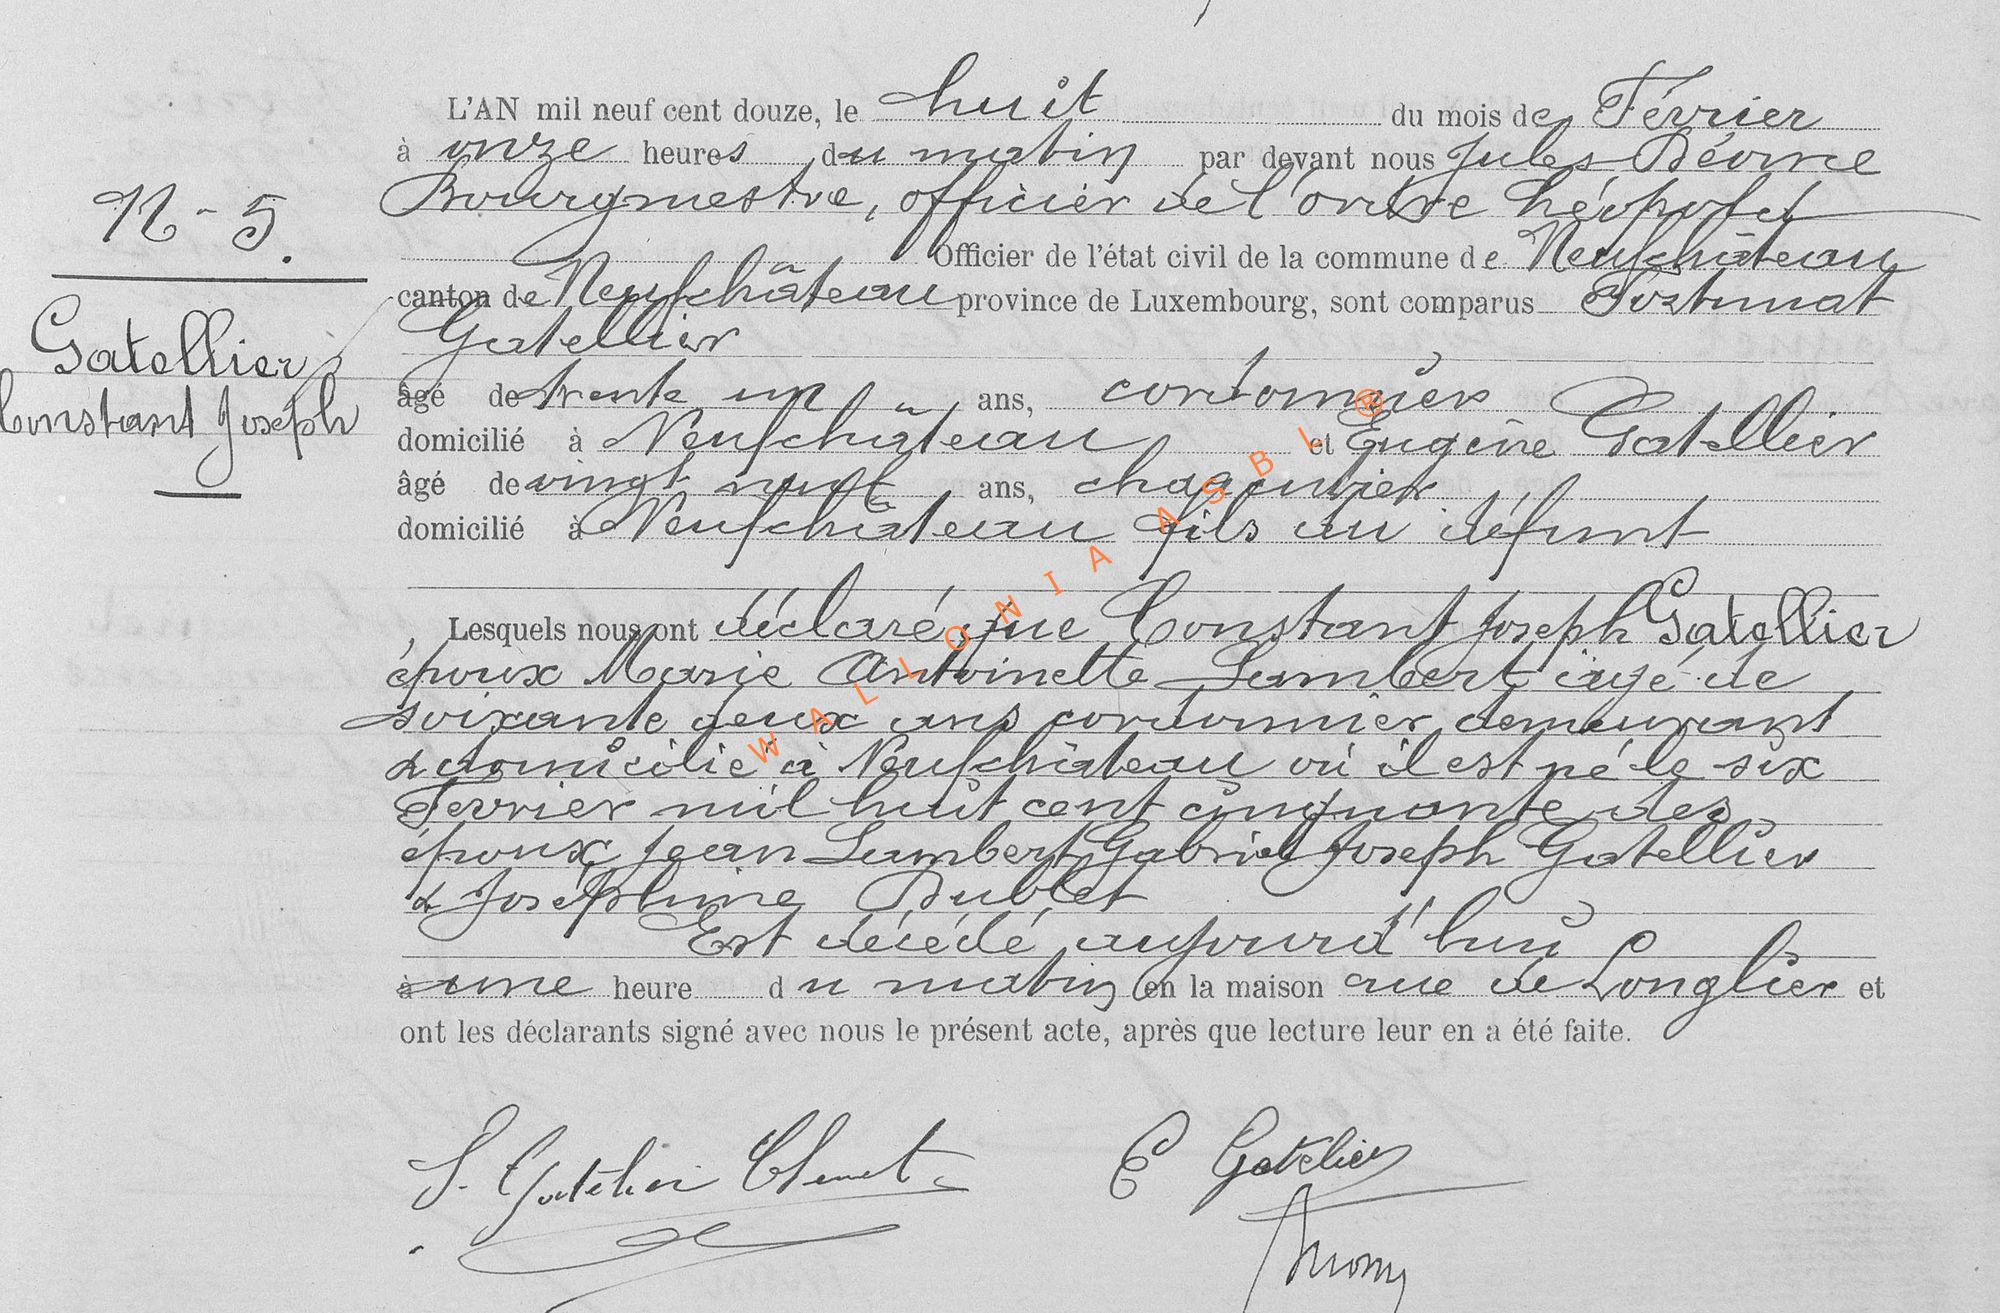 L'AN mil neuf cent douze, le huit du mois de Février
à onze heures du matin par devant nous Jules
Bourgmestre, officier de l'ordre Léopold
N- 5.
Officier de l'état civil de la commune de Neufchâteau
canton de Neufchâteau province de Luxembourg, sont comparus Fortunat
Gatellier
Gatellier
Constant Joseph
âgé de trente un ans, cordonnier
domicilié à Neufchâteau et Eugène Gatellier
âgé de vingt neuf ans,
domicilié à Neufchâteau fils du défunt
Lesquels nous ont déclaré que Constant Joseph Gatellier
époux Marie Antoinette Lambert âgé de
soixante deux ans cordonnier demeurant
& domicilié à Neufchâteau où il est né le six
Fevrier mil huit cent cinquante des
époux Jean Lambert Gabriel Joseph Gatellier
& Joséphine Dublet
Est décédé aujourd'hui
à une heure du matin en la maison rue de Longlier et
ont les déclarants signé avec nous le présent acte, après que lecture leur en a été faite.
E Gatelier
WALLONIA ASBL ®